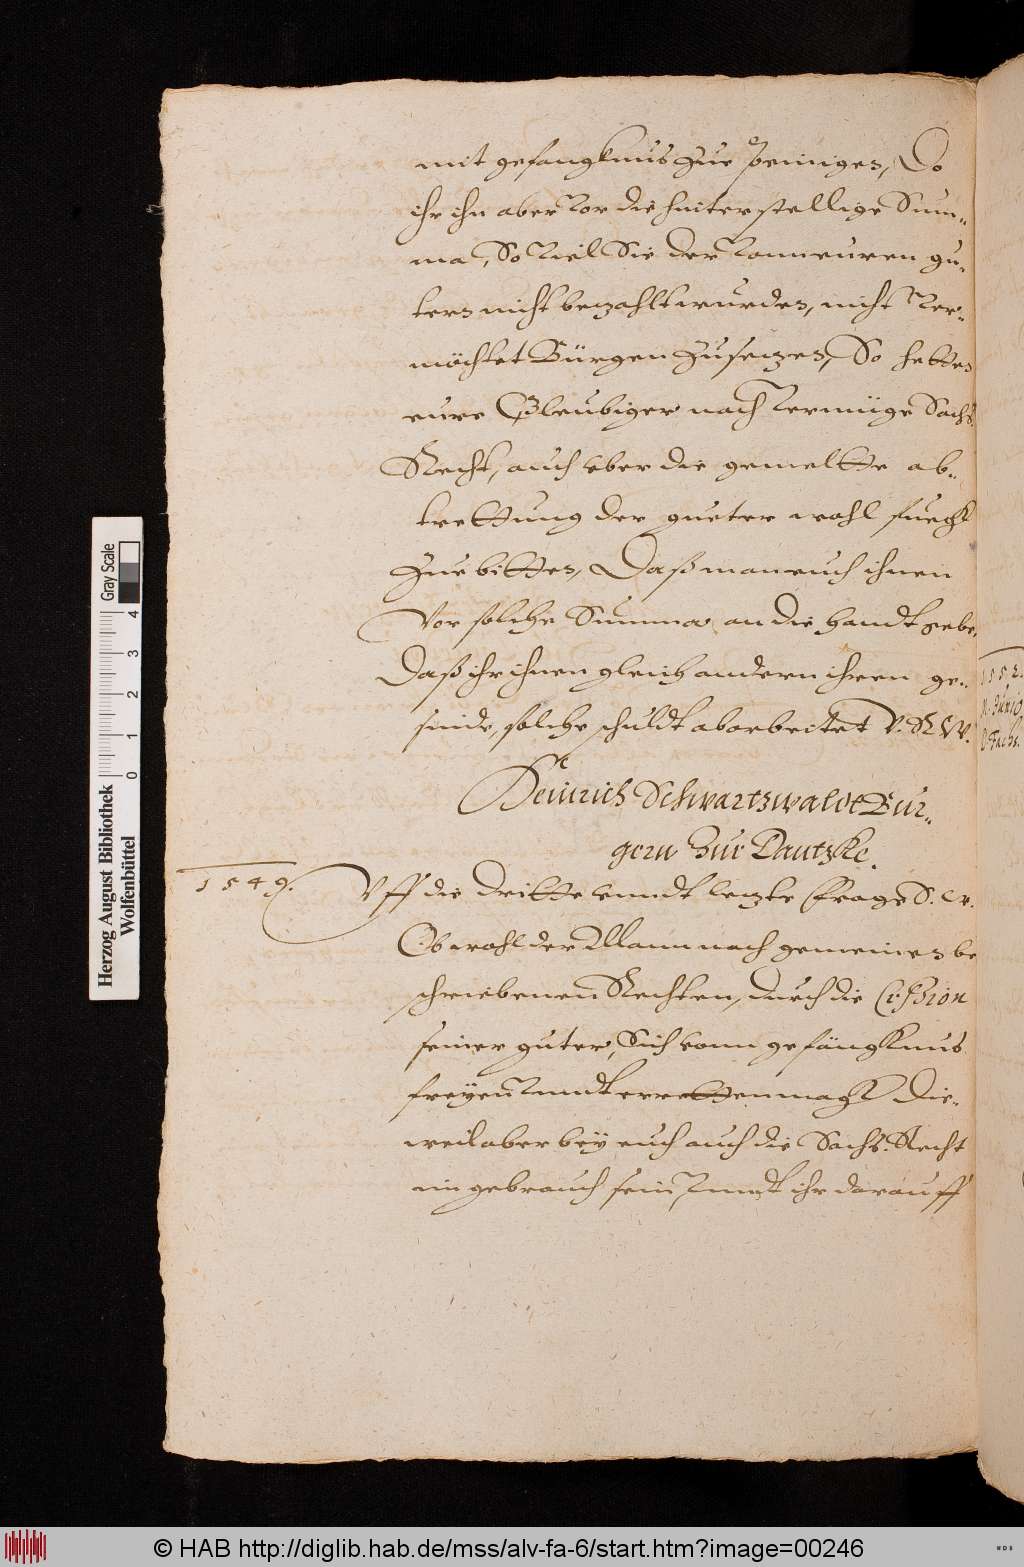 mit gefangknus zue peinigen, Do
ihr ihn aber vor die hinterstellige Sum-
ma, So viel Sie der vonn euren gu-
tern nicht bezahlt wurden, nicht ver-
möchtet Bürgen zu setzen, So hetten
eure Gleubiger nach vermüge Sachs.
Recht, auch vber die gemelte ab-
trettung der gueter wohl fueg
Zue bitten, Daß man euch ihnen
Vor solche Summa an die handt gebe,
Daß ihr ihnen gleich andern ihren ge-
sinde, solche schuldt abarbeitet V. R. W.
Heinrich Schwartzwaldt Bur-
gern Zur Dantzke.
1549.
Vff die dritte vnndt letzte Frage S.
Ob wohl der Mann nach gemeinen be
schriebenen Rechten, durch die Cession
seiner guter, Sich vonn gefängknus
freyen vnndt erretten mag, Die-
weil aber bey euch auch die Sachs. Recht
im gebrauch sein, vnndt ihr darauff
1552.
Junio
Fachs.
Herzog August Bibliothek
Wolfenbüttel
0 1 2 3 4
Gray Scale
© HAB http://diglib.hab.de/mss/alv-fa-6/start.htm?image=00246